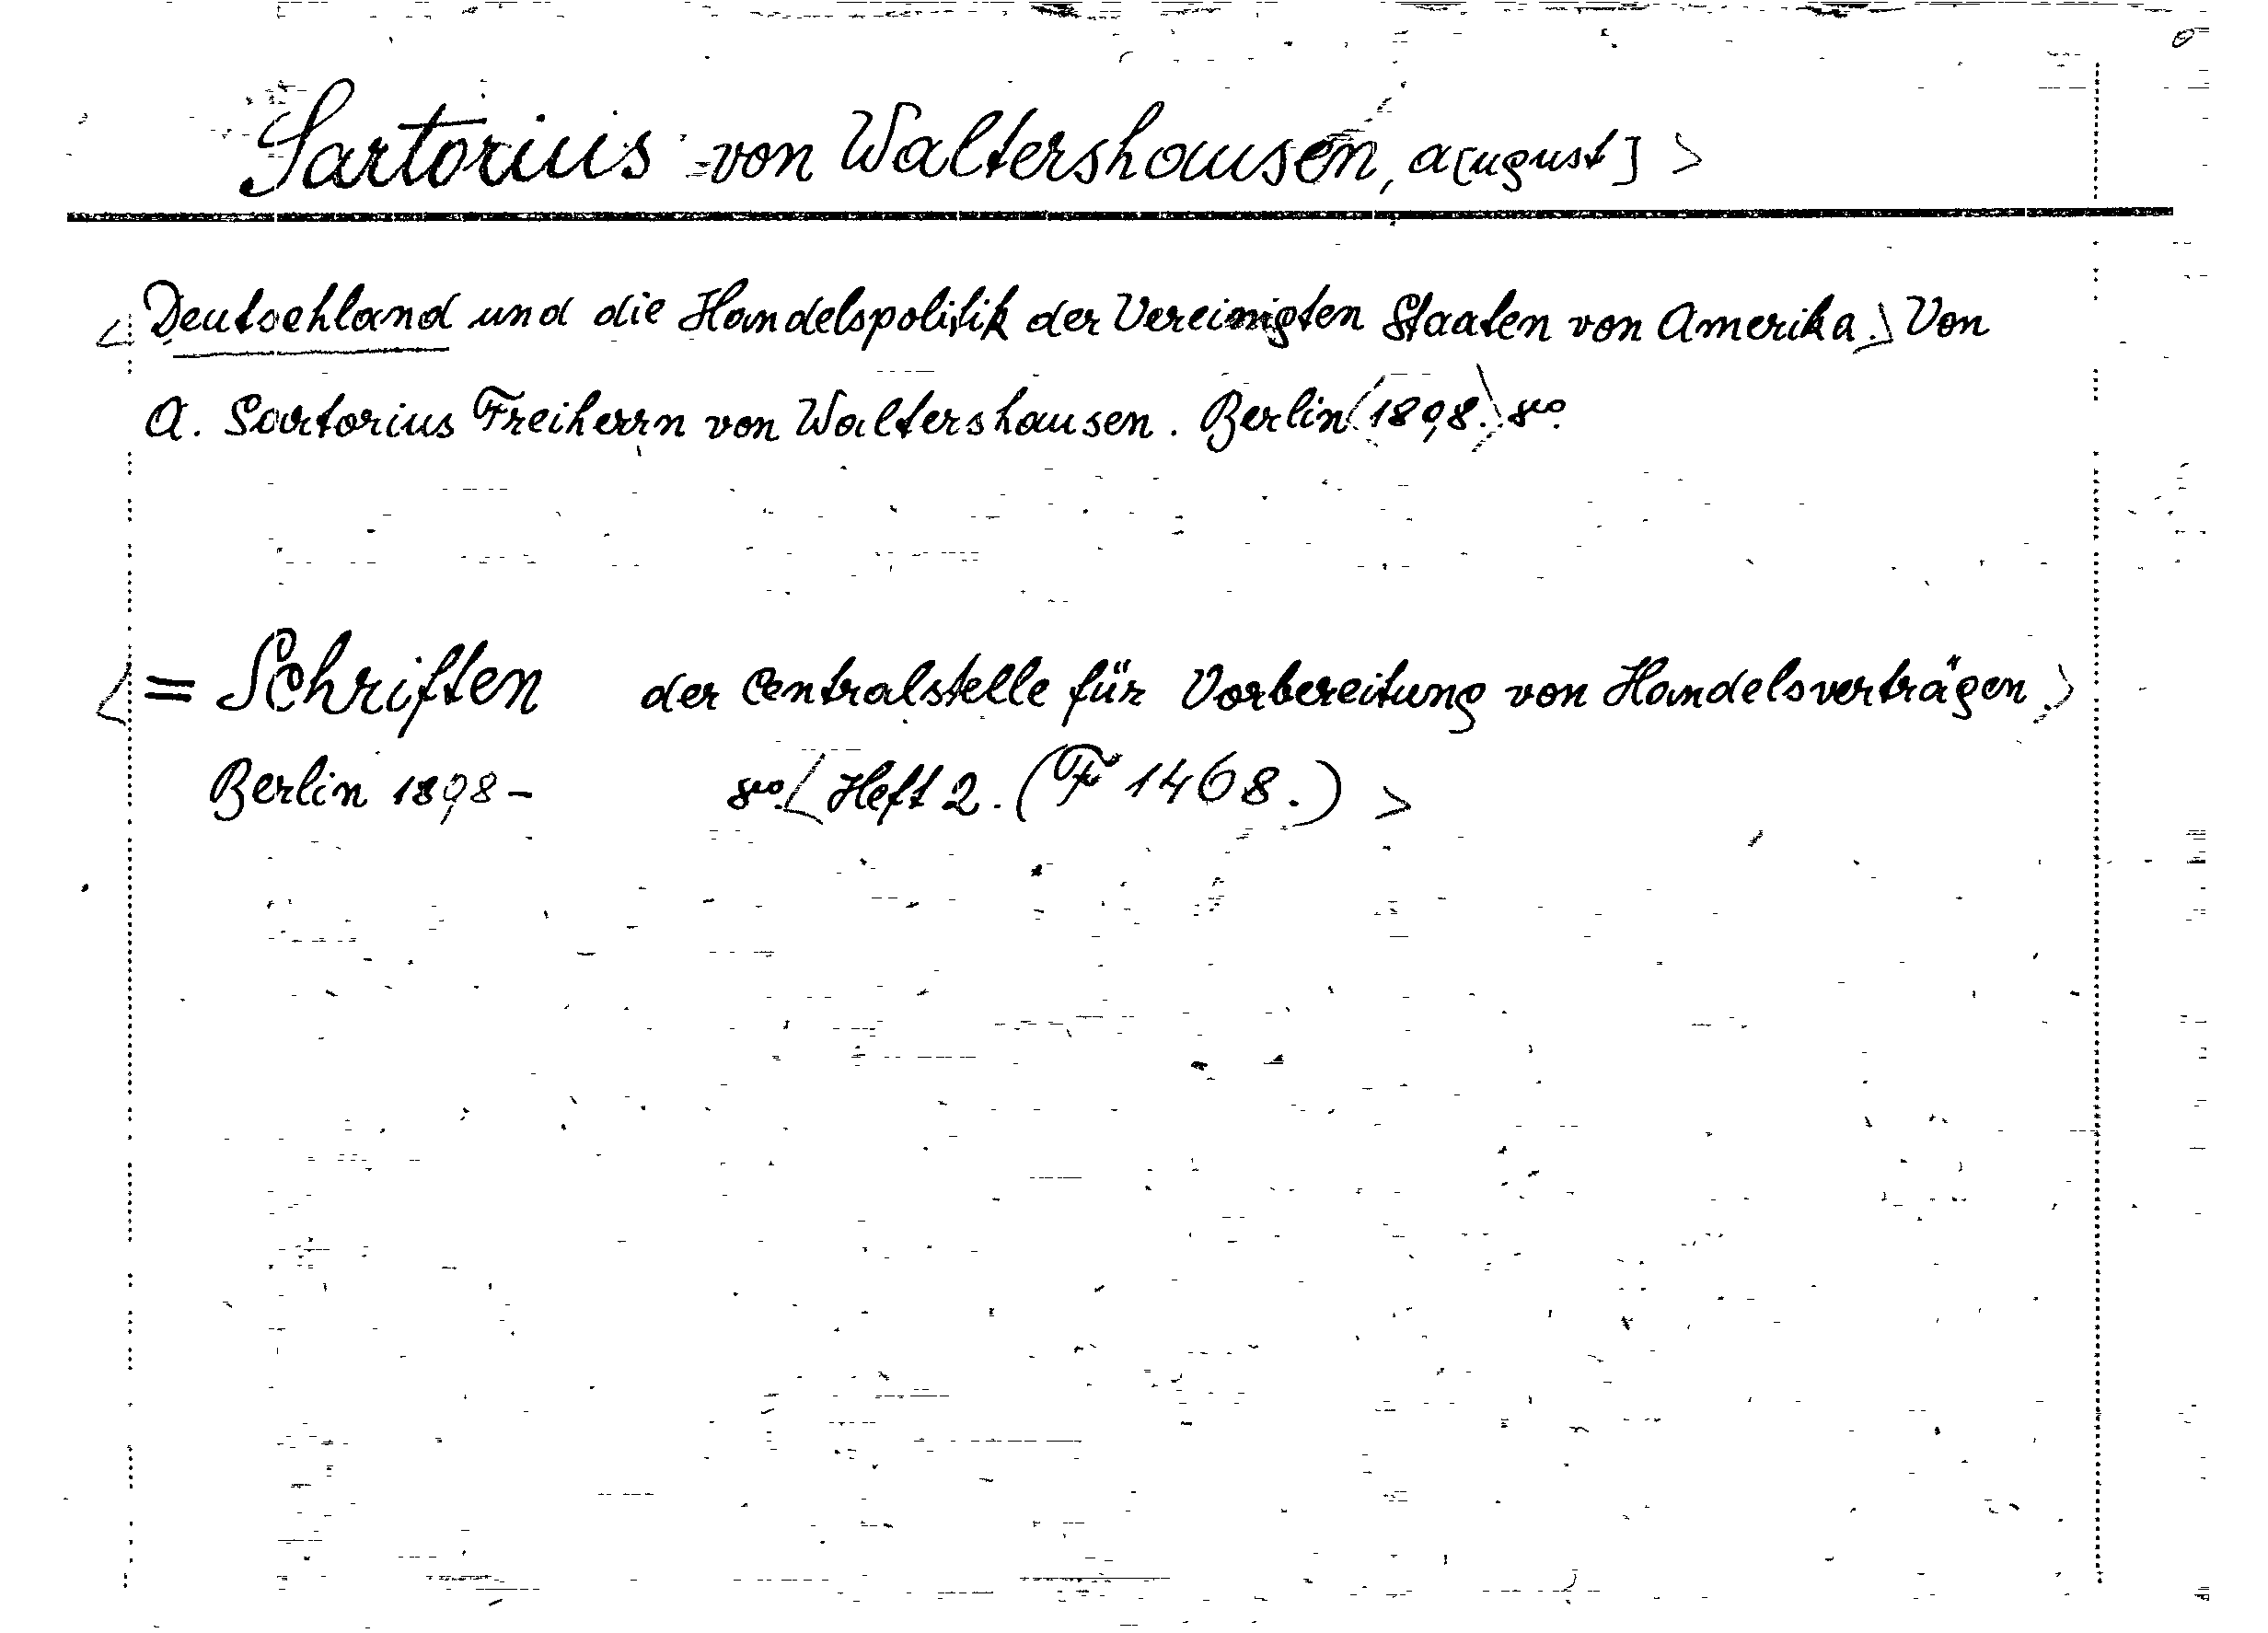 Sartorius von Waltershausen, A[ugust] >
< Deutschland und die Handelspolitik der Vereinigten Staaten von Amerika.> Von
A. Sartorius Freiherrn von Waltershausen. Berlin <1898.> 8vo.
<= Schriften der Centralstelle für Vorbereitung von Handelsverträgen.>
Berlin 1898- 8vo. < Heft 2. (F 1468.) >